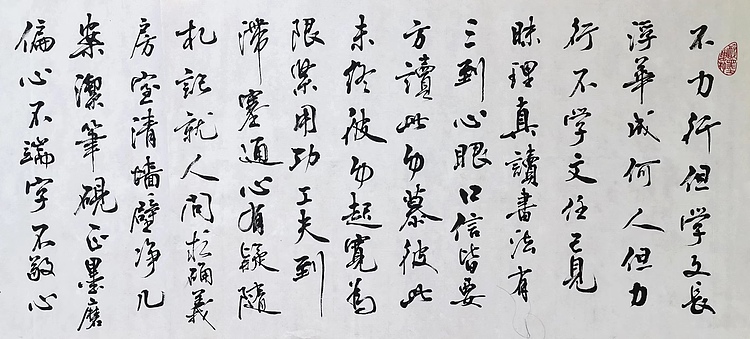 不力行但学文长
浮華成何人但力
行不学文任己見
昧理真讀書法有
三到心眼口信皆要
方讀此勿慕彼此
未終彼勿起寬為
限緊用功工夫到
滯塞通心有疑隨
札記就人问求确義
房室清墙壁净几
案潔筆硯正墨磨
偏心不端字不敬心